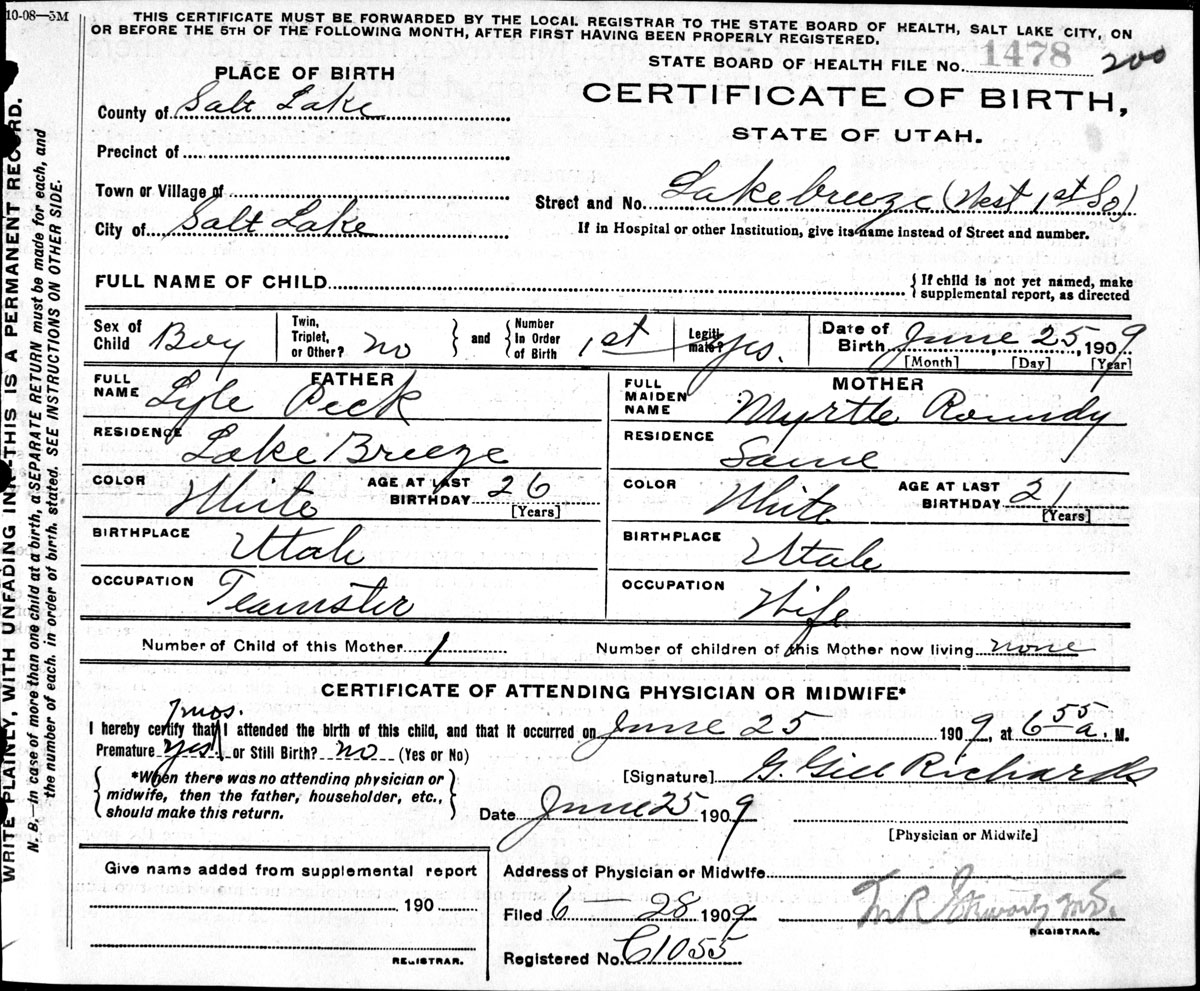 10-08—5M
THIS CERTIFICATE MUST BE FORWARDED BY THE LOCAL REGISTRAR TO THE STATE BOARD OF HEALTH, SALT LAKE CITY, ON
OR BEFORE THE 5TH OF THE FOLLOWING MONTH, AFTER FIRST HAVING BEEN PROPERLY REGISTERED.
STATE BOARD OF HEALTH FILE No. 1478 200
PLACE OF BIRTH
CERTIFICATE OF BIRTH,
STATE OF UTAH.
County of Salt Lake
Precinct of
Town or Village of
City of Salt Lake
Street and No. Lakebreeze (West 1st So)
If in Hospital or other Institution, give its name instead of Street and number.
FULL NAME OF CHILD
{ If child is not yet named, make
supplemental report, as directed
Sex of Child Boy
Twin, Triplet, or Other? no
and
Number in Order of Birth 1st
Legitimate? yes.
Date of Birth June 25, 1909
[Month] [Day] [Year]
FATHER
FULL NAME Lyle Peck
RESIDENCE Lake Breeze
COLOR White AGE AT LAST BIRTHDAY 26
[Years]
BIRTHPLACE Utah
OCCUPATION Teamster
MOTHER
FULL MAIDEN NAME Myrtle Roundy
RESIDENCE Same
COLOR White AGE AT LAST BIRTHDAY 21
[Years]
BIRTHPLACE Utah
OCCUPATION Wife
Number of Child of this Mother 1 Number of children of this Mother now living none
CERTIFICATE OF ATTENDING PHYSICIAN OR MIDWIFE*
7mos.
I hereby certify that I attended the birth of this child, and that it occurred on June 25 1909, at 6 55 a. M.
Premature yes or Still Birth? no (Yes or No)
*When there was no attending physician or
midwife, then the father, householder, etc.,
should make this return.
[Signature] G. Gill Richards
Date June 25 1909
[Physician or Midwife]
Give name added from supplemental report
190
REGISTRAR.
Address of Physician or Midwife
Filed 6 28 1909
REGISTRAR.
Registered No. C1055
WRITE PLAINLY, WITH UNFADING INK—THIS IS A PERMANENT RECORD.
N. B.—in case of more than one child at a birth, a SEPARATE RETURN must be made for each, and
the number of each, in order of birth, stated. SEE INSTRUCTIONS ON OTHER SIDE.